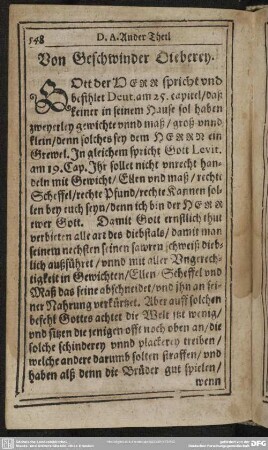 548
D. A. Ander Theil
Von Geschwinder Dieberey.
GOtt der HERR spricht vnd
befihlt Deut. am 25. capitel/daß
keiner in seinem Hause sol haben
zweyerley gewichte vnnd maß/groß vnnd
klein/denn solches sey dem HERRN ein
Grewel. In gleichem spricht Gott Levit.
am 19. Cap. Jhr sollet nicht vnrecht han-
deln mit Gewicht/Ellen vnd maß/rechte
Scheffel/rechte Pfund/rechte Kannen sol-
len bey euch seyn/denn ich bin der HERR
ewer Gott. Damit Gott ernstlich thut
verbieten alle art des diebstals/damit man
seinem nechsten seinen sawren schweiß dieb-
lich außführet/vnnd mit aller Vngerech-
tigkeit in Gewichten/Ellen/Scheffel vnd
Maß das seine abschneidet/vnd jhn an sei-
ner Nahrung verkürtzet. Aber auff solchen
befehl Gottes achtet die Welt jtzt wenig/
vnd sitzen die jenigen offt noch oben an/die
solche schinderey vnnd plackerey treiben/
welche andere darumb solten straffen/vnd
haben alß denn die Brüder gut spielen/
wenn